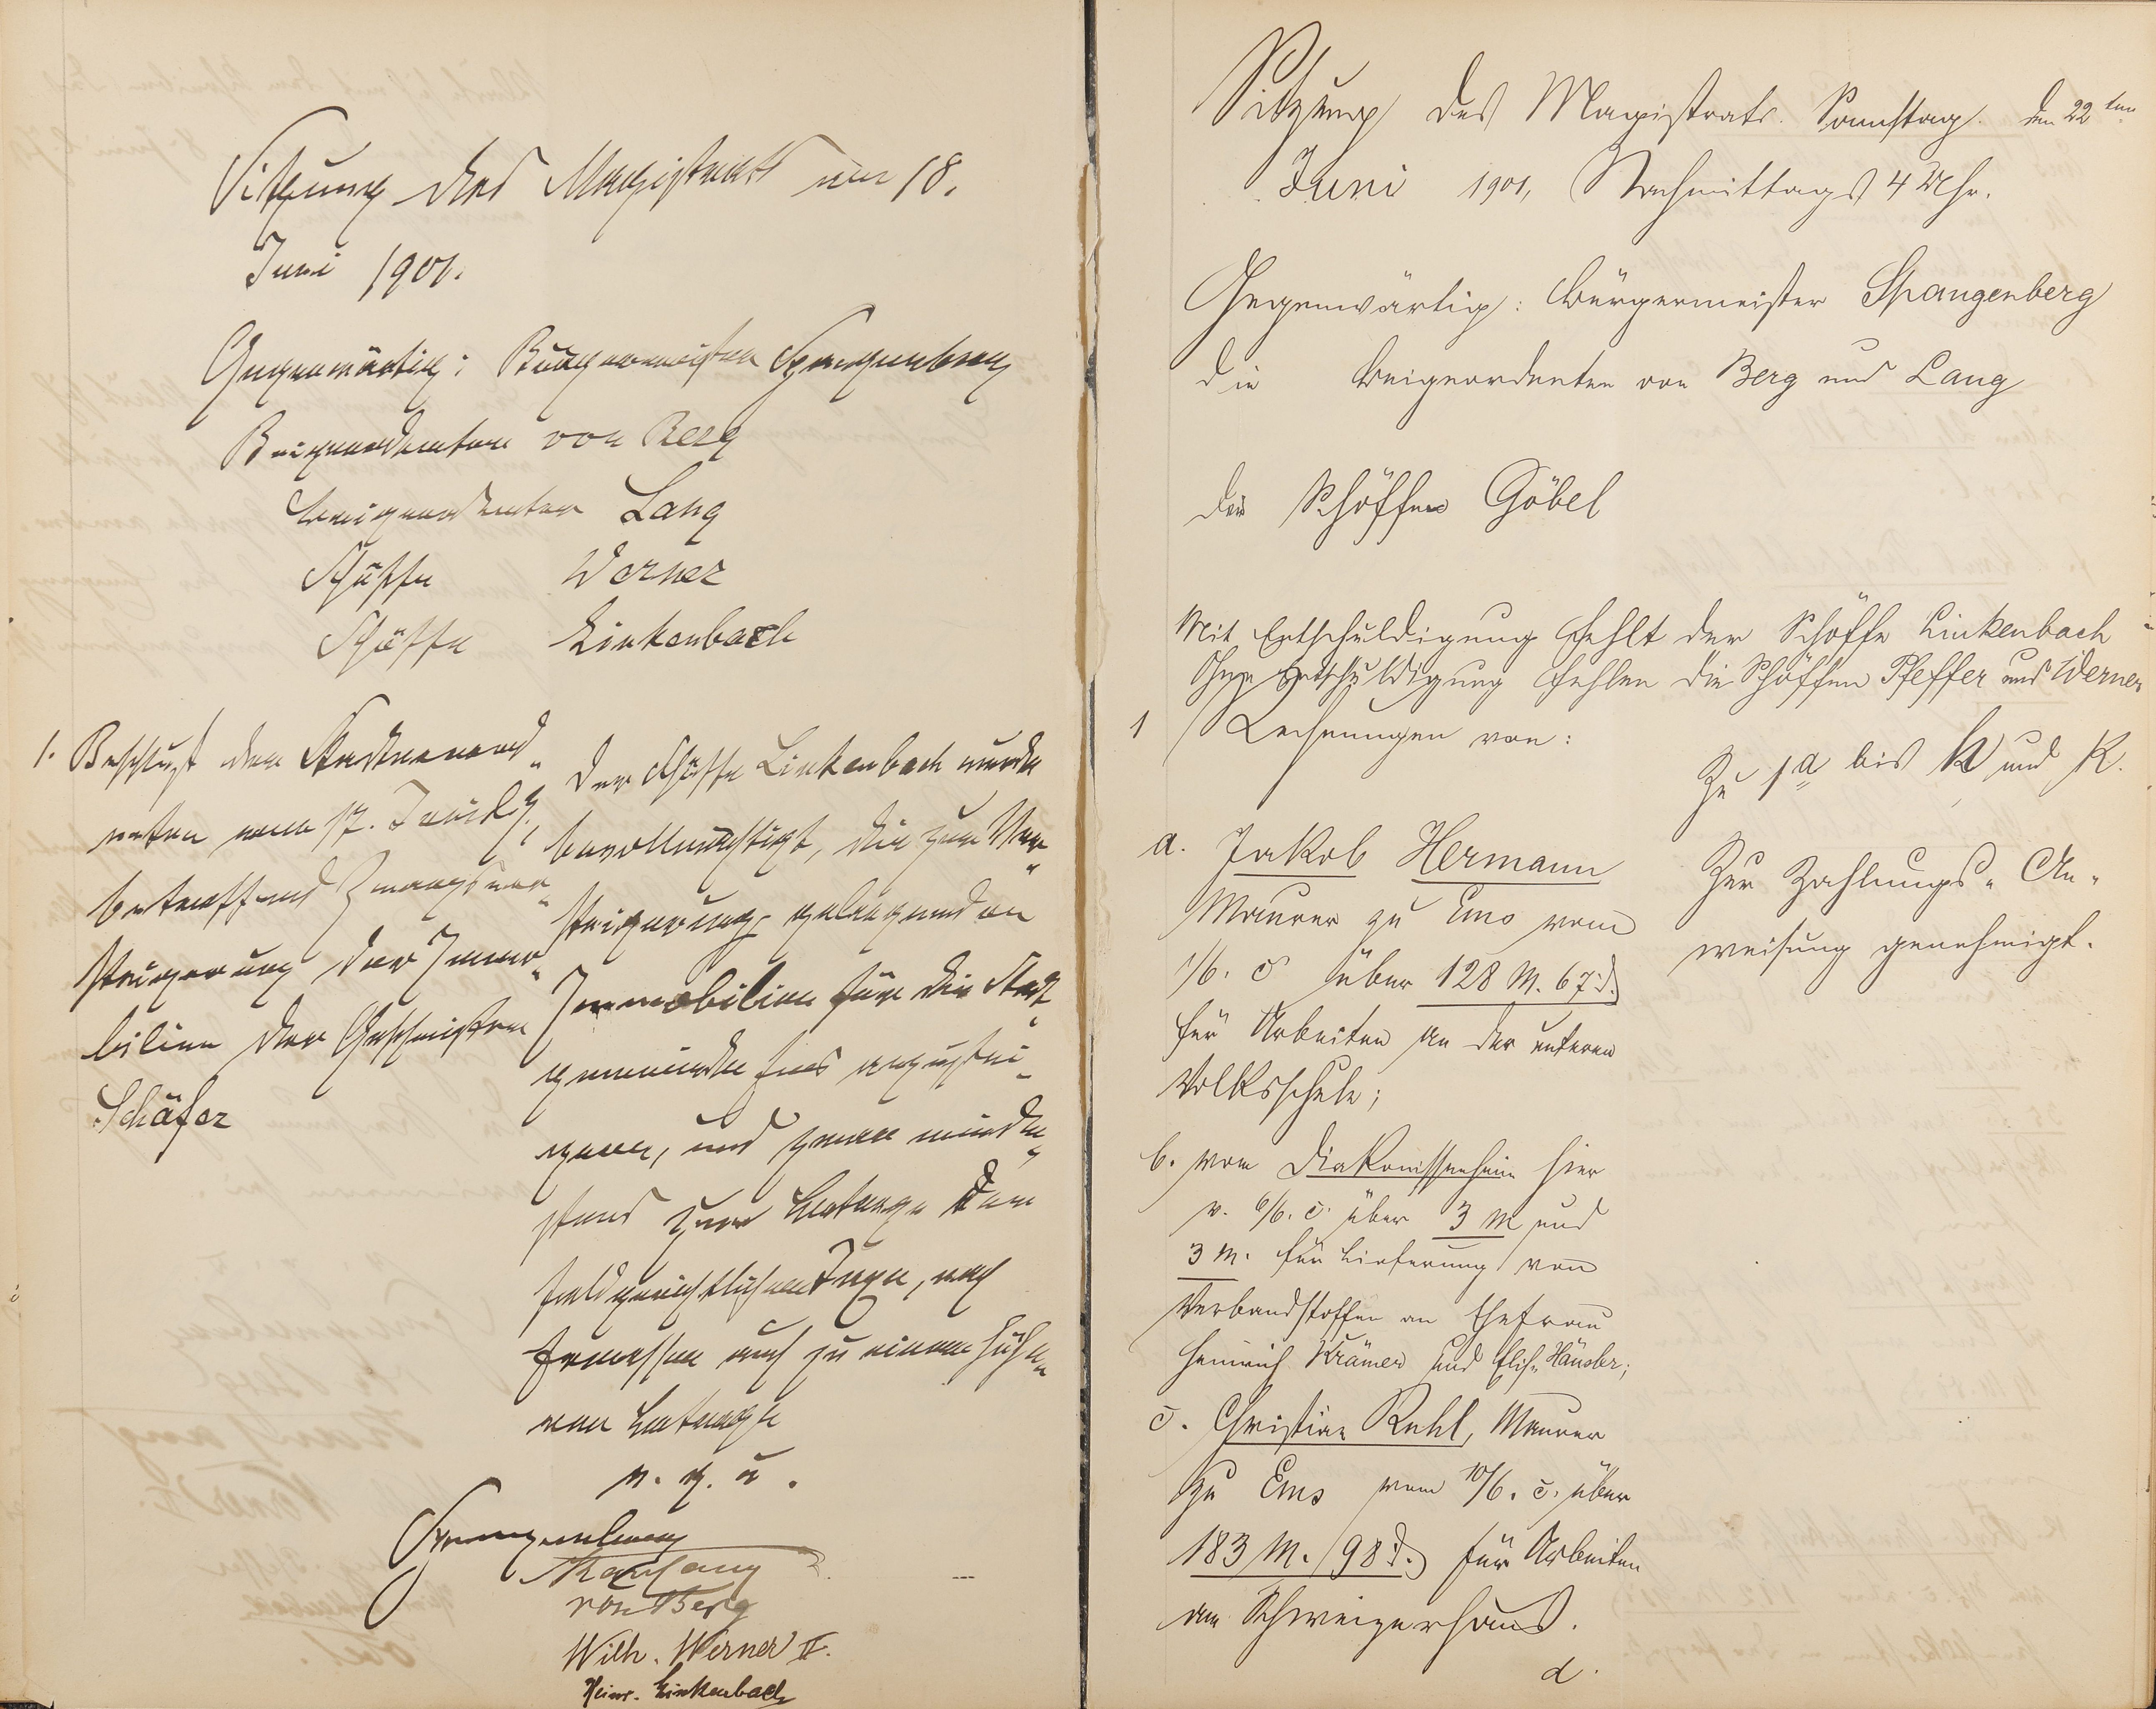 Sitzung des Magistrats am 18.
Juni 1901.
Gegenwärtig: Bürgermeister Spangenberg
Beigeordneter von Berg
Beigeordneter Lang
Schöffe Werner
Schöffe Linkenbach
1. Beschluß der Stadtverord„
neten vom 17. Juni d. J.,
betreffend Zwangsver„
steigerung der Immo„
bilien der Geschwister
Schäfer
Der Schöffe Linkenbach wurde
bevollmächtigt, die zur Ver„
steigerung gelangenden
Immobilien für die Stadt„
gemeinde Ems anzustei„
gern, und zwar minde„
stens zum Betrage der
feldgerichtlichen Taxe, nach
Ermessen auch zu einem höhe„
ren Betrage
v. g. u.
Spangenberg
Karl Lang
von Berg
Wilh. Werner II.
Heinr. Linkenbach
Sitzung des Magistrats. Samstag. den 22ten
Juni 1901, Nachmittags 4 Uhr.
Gegenwärtig: Bürgermeister Spangenberg
die Beigeordneten von Berg und Lang
der Schöffe Göbel
Mit Entschuldigung fehlt der Schöffe Linkenbach
Ohne Entschuldigung fehlen die Schöffen Pfeffer und Werner
1 Rechnungen von:
a. Jakob Hermann
Maurer zu Ems vom
1/6. c. über 128 M. 67 d.
für Arbeiten an der unteren
Volksschule;
b. vom Diakonissenheim hier
v. 6/6. c. über 3 M und
3 M. für Lieferung von
Verbandstoffen an Ehefrau
Heinrich Krämer und Elis. Häusler;
c. Christian Ruhl, Maurer
zu Ems vom 10/6. c. über
183 M. 98 d. für Arbeiten
am Schweizerhaus.
d.
Zu 1a bis h und k.
Zur Zahlungs„ An„
weisung genehmigt.